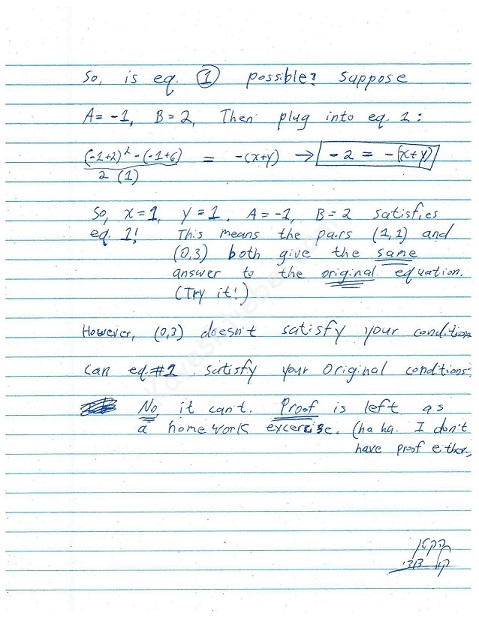 So, is eq. ① possible? Suppose
A = -1, B = 2, Then plug into eq. 1:
(-1+2)² - (-1+6) / 2(1) = -(x+y) → -2 = -(x+y)
So, x=1, y=1, A=-1, B=2 satisfies
eq. 1! This means the pairs (1,1) and
(0,3) both give the same
answer to the original equation.
(Try it!)
However, (0,3) doesn't satisfy your condition
Can eq.#1 satisfy your Original conditions.
No it cant. Proof is left as
a homework excercise. (ha ha. I don't
have proof either,